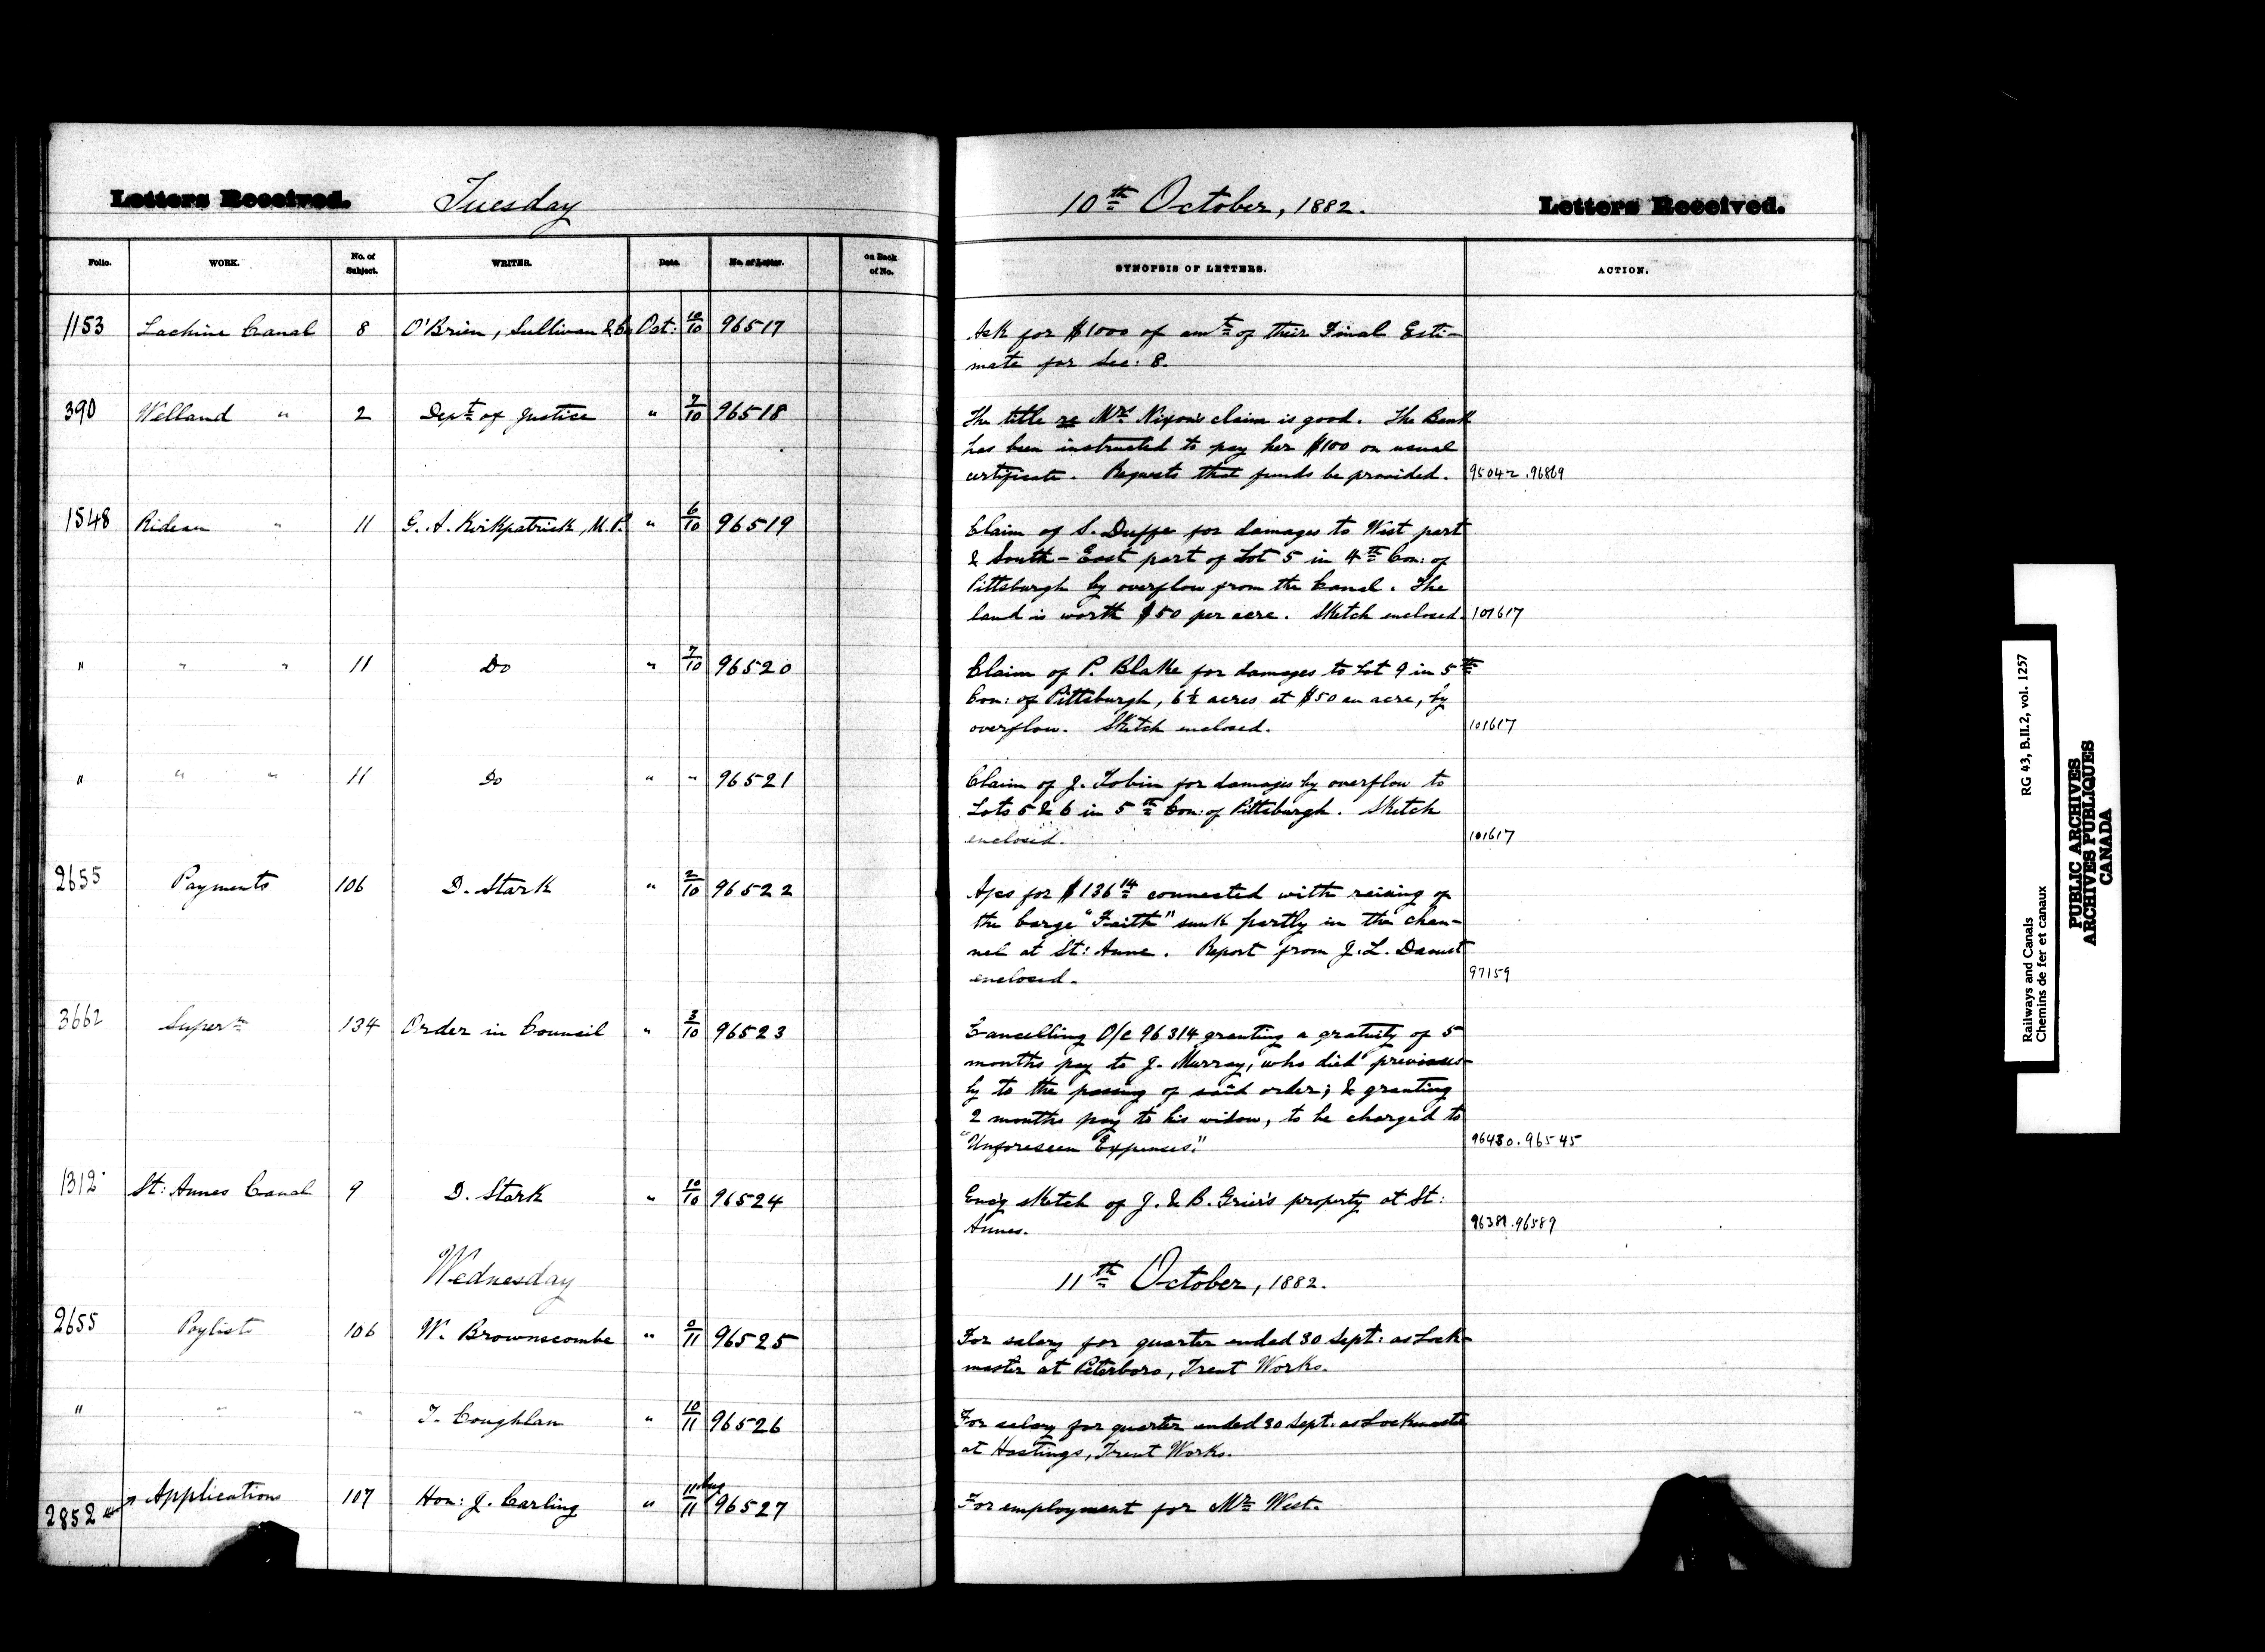 Letters Received. Tuesday 10th October, 1882. Letters Received.
Folio. WORK. No. of Subject. WRITER. Date. No. of Letter. on Back of No. SYNOPSIS OF LETTERS. ACTION.
1153 Lachine Canal 8 O'Brien, Sullivan & Co Oct: 10/10 96517 Ask for $1000 of amt of their Final Esti-
mate for Sec: 8.
390 Welland " 2 Dept of Justice " 7/10 96518 The title re Mrs Nixon's claim is good. The Bank
has been instructed to pay her $100 on usual
certificate. Requests that funds be provided. 95042.96869
1548 Rideau " 11 G. A. Kirkpatrick, M.P. " 6/10 96519 Claim of S. Duffe for damages to West part
& South-East part of Lot 5 in 4th Con: of
Pittsburgh by overflow from the Canal. The
land is worth $50 per acre. Sketch enclosed. 101617
" " " 11 Do " 7/10 96520 Claim of P. Blake for damages to Lot 9 in 5th
Con: of Pittsburgh, 6½ acres at $50 an acre, by
overflow. Sketch enclosed. 101617
" " " 11 Do " " 96521 Claim of J. Tobin for damages by overflow to
Lots 5 & 6 in 5th Con: of Pittsburgh. Sketch
enclosed. 101617
2655 Payments 106 D. Stark " 2/10 96522 A/cs for $136 14 connected with raising of
the barge "Faith" sunk partly in the chan-
nel at St: Anne. Report from J. L. Daoust
enclosed. 97159
3662 Supern 134 Order in Council " 3/10 96523 Cancelling O/C 96314 granting a gratuity of 5
months pay to J. Murray, who died previous-
ly to the passing of said order; & granting
2 months pay to his widow, to be charged to
"Unforeseen Expenses." 96430.96545
1312 St: Annes Canal 9 D. Stark " 10/10 96524 Enc'g sketch of J. & B. Grier's property at St:
Annes. 96381.96589
Wednesday 11th October, 1882.
2655 Paylists 106 W. Brownscombe " 9/11 96525 For salary for quarter ended 30 Sept: as Lock-
master at Peterboro, Trent Works.
" " " T. Coughlan " 10/11 96526 For salary for quarter ended 30 Sept: as Lockmaster
at Hastings, Trent Works.
2852 Applications 107 Hon: J. Carling " 11/11 96527 For employment for Mr West.
Railways and Canals RG 43, B.II.2, vol. 1257
Chemins de fer et canaux
PUBLIC ARCHIVES
ARCHIVES PUBLIQUES
CANADA